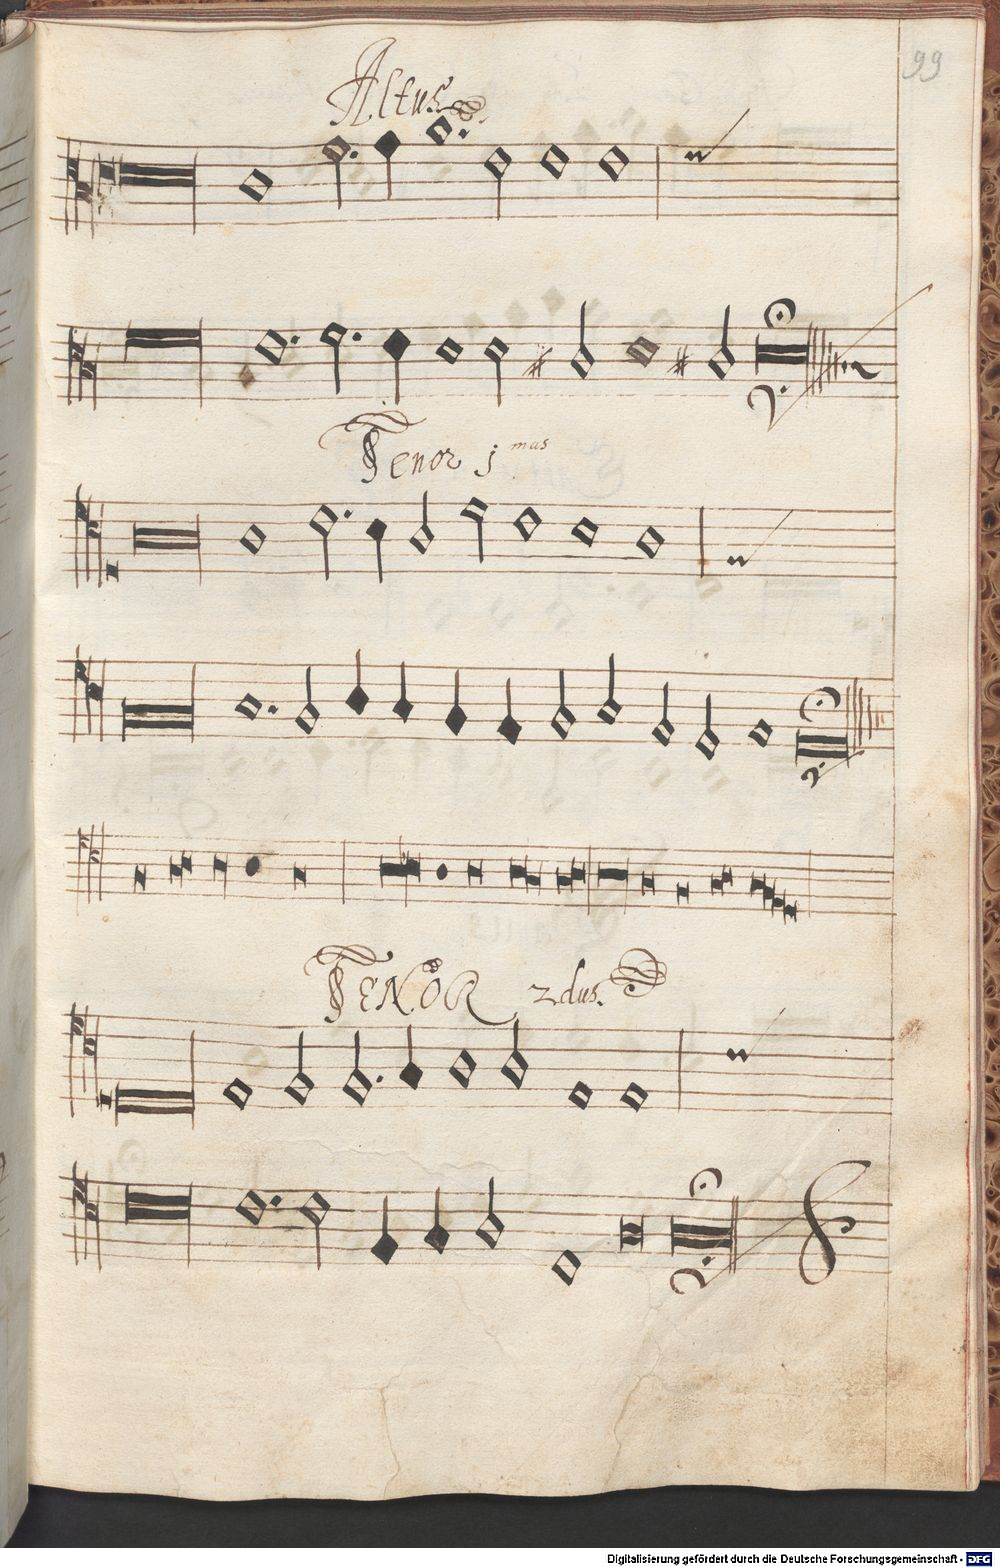 99
Altus
Tenor j mus
TENOR 2dus.
Digitalisierung gefördert durch die Deutsche Forschungsgemeinschaft - DFG